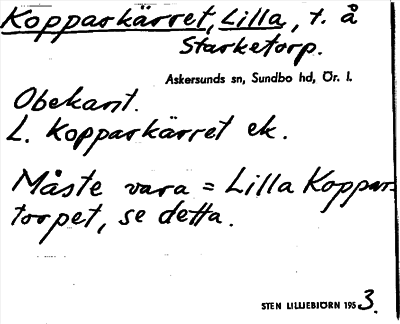 Kopparkärret, Lilla, t. å
Starketorp.
Askersunds sn, Sundbo hd, Ör. l.
Obekant.
L. Kopparkärret ek.
Måste vara = Lilla Koppar-
torpet, se detta.
STEN LILLIEBJÖRN 1953.